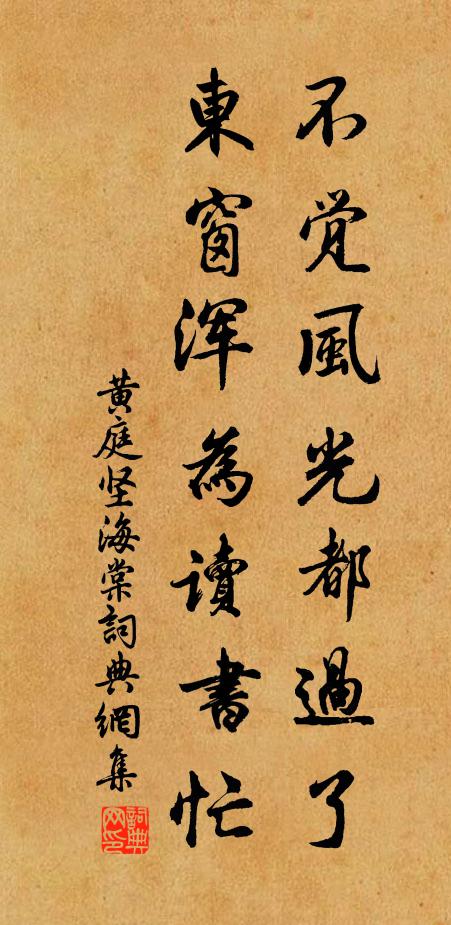 不觉風光都過了
東窗浑為讀書忙
黄庭坚海棠詞典網集
詞典网印